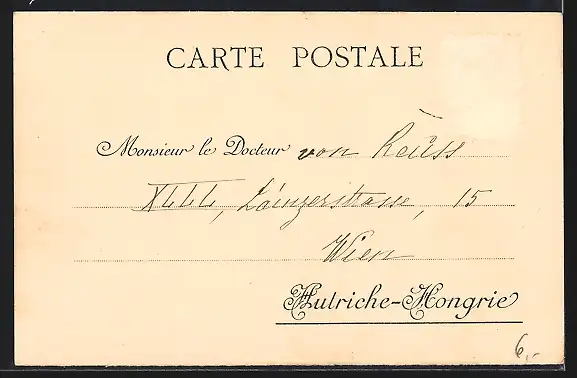 CARTE POSTALE
Monsieur le Docteur von Reüss
XIII, Lainzerstrasse, 15
Wien
Autriche-Hongrie
6,-